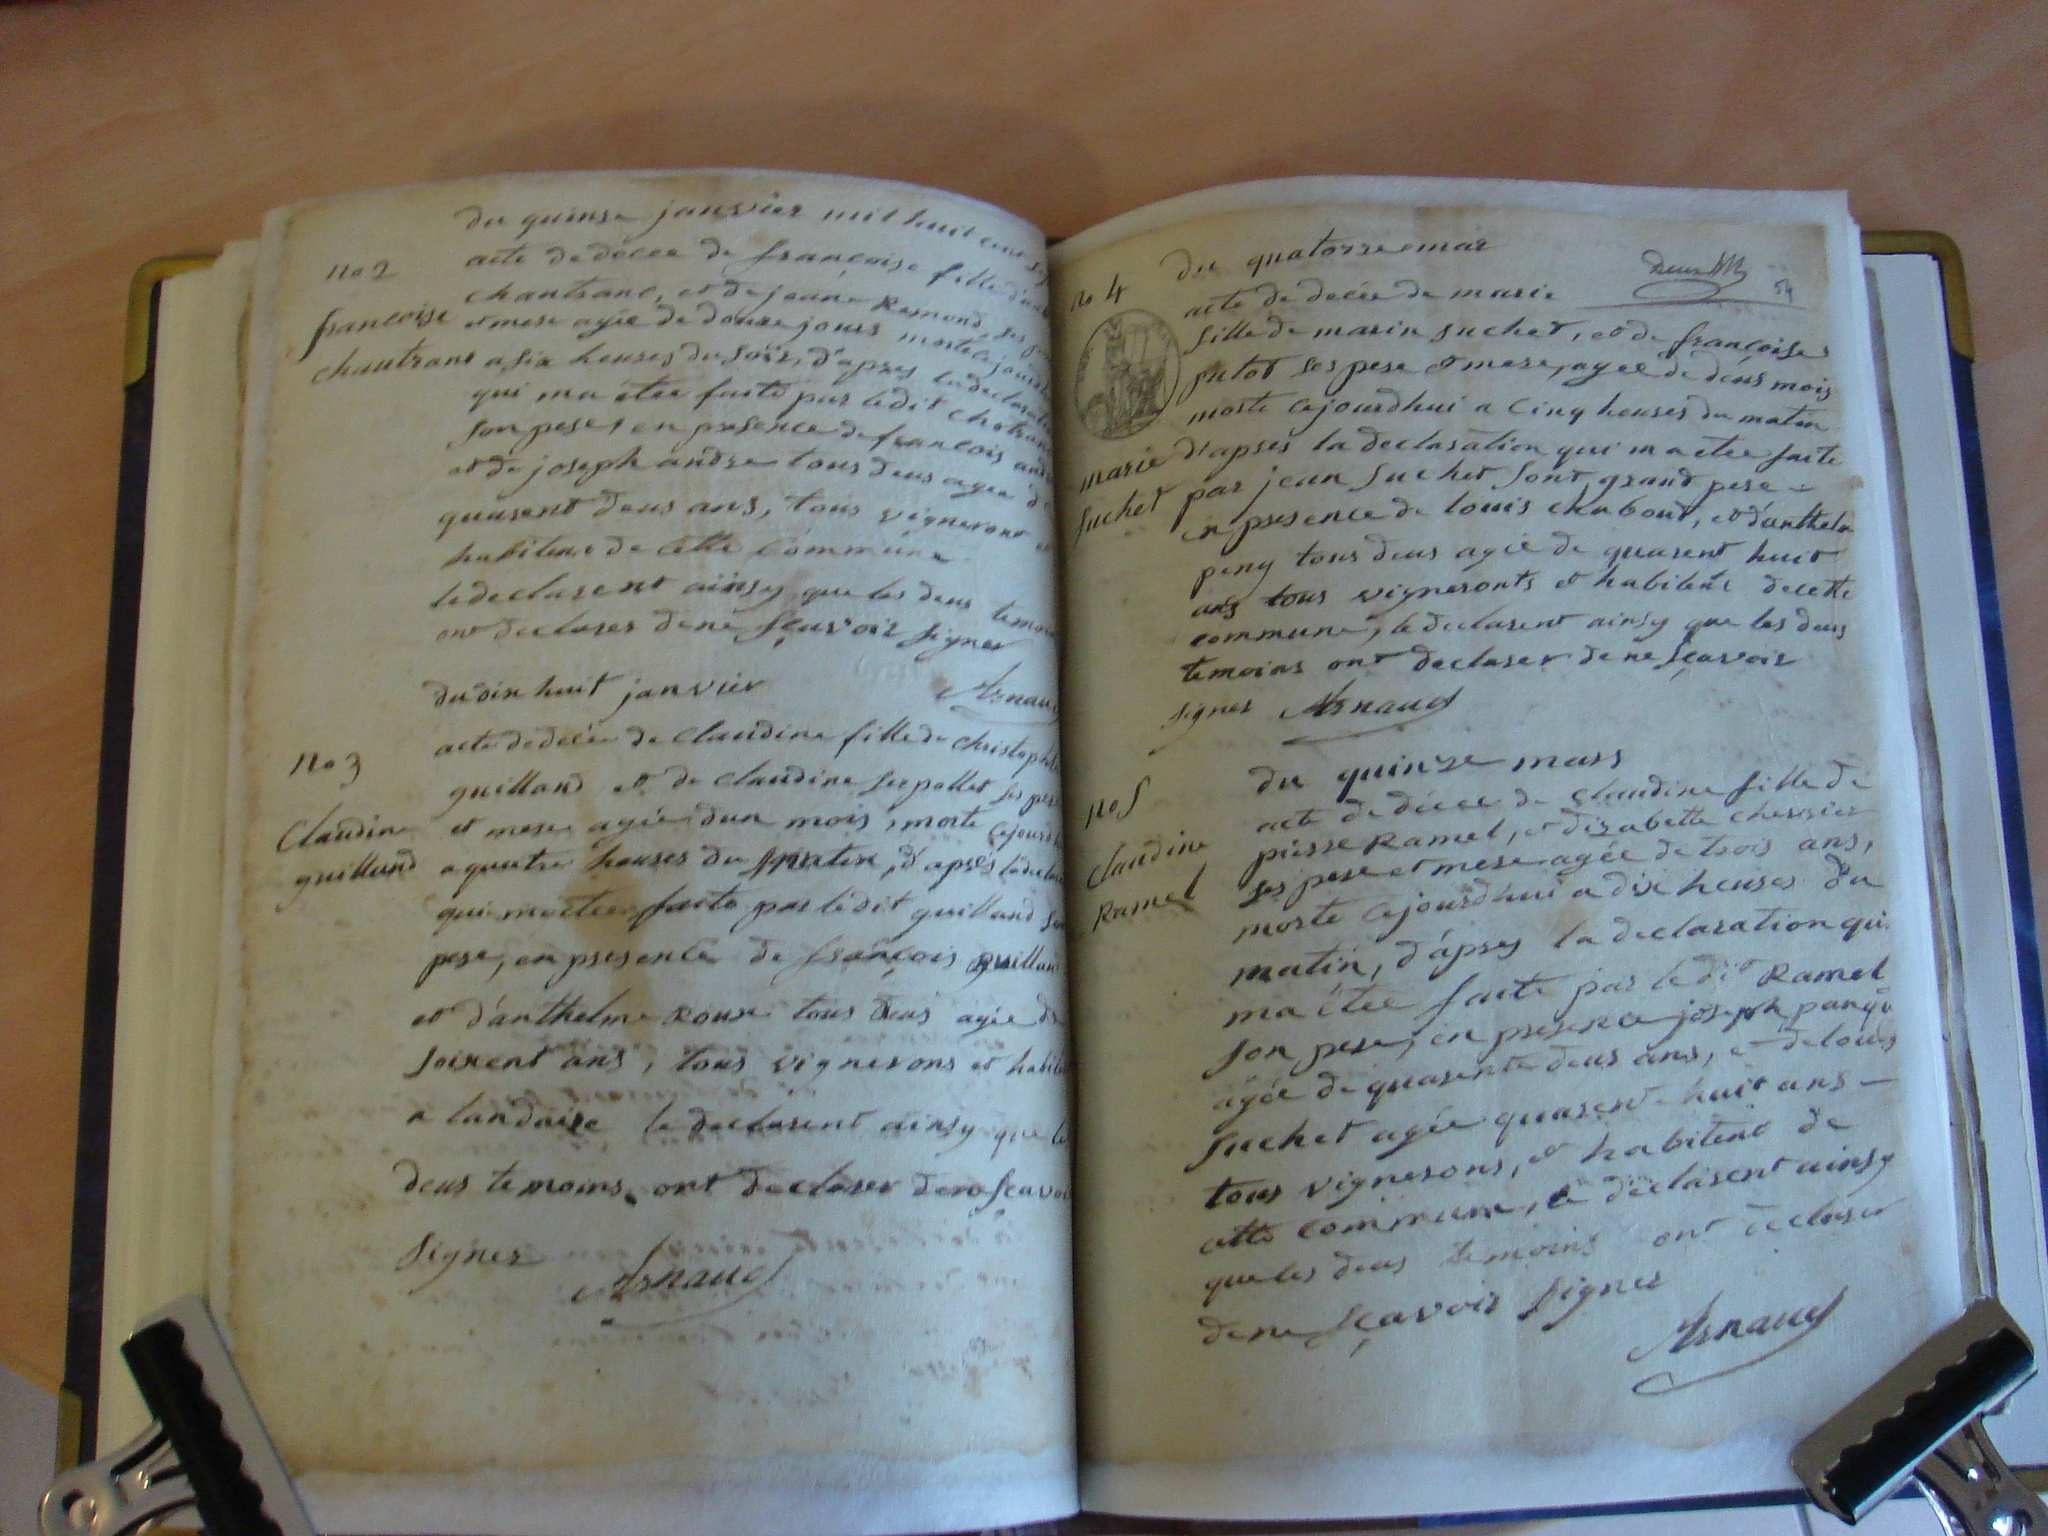 du quinse janvier mil huit cent
no 2
acte de décee de françoise fille
françoise
chantrane, et de jeane Remond ses
chantrane
et mere agée de douze jours morte cejourdhui
a six heures du soir, d'apres la declaration
qui ma étee faite par ledit chatrane
son pere, en presence de françois andre
et de joseph andre tous deus agee de
quarent deus ans, tous vigneront et
habitens de cette commune
le declarent ainsy que les deus temoins
ont declarer de ne sçavoir signer
Arnaud
du dix huit janvier
no 3
acte de décee de claudine fille de christophe
Claudine
guilland et de claudine serpollet ses pere
guilland
et mere agée dun mois, morte cejourdhui
a quatre heuses du matin, d'aprés la declaration
qui ma etee faite par ledit guilland son
pere, en presence de françois guilland
et d'anthelme Roux tous deus agée de
soixent ans, tous vignerons et habitens
a landaize le declarent ainsy que les
deus temoins ont declarer de ne scavoir
signer
Arnaud
du quatorze mar
no 4
acte de decée de marie
54
fille de marin suchet, et de françoise
putot ses pere et mere, agée de deus mois
morte cejourdhui a cinq heuses du matin
marie
d'aprés la declaration qui ma etee faite
suchet
par jean suchet sont grand pere
en presence de louis chabout, et danthelme
peny tous deus agée de quarent huit
ans tous vigneronts et habitent de cette
commune, le declarent ainsy que les deus
temoins ont declarer de ne sçavoir
signer Arnaud
du quinze mars
no 5
acte de décee de claudine fille de
claudine
pierre Ramel, et dizabette chervier
Ramel
ses pere et mere agée de trois ans,
morte cejourdhui a dix heuses du
matin, d'aprey la declaration qui
ma étee faite par le dit Ramel
son pere, en presence joseph
agée de quarente deus ans, et de louis
suchet agée quarent huit ans
tous vignerons, et habitent de
cette commune, le déclarent ainsy
que les deus temoins ont declarer
de ne sçavoir signer
Arnaud